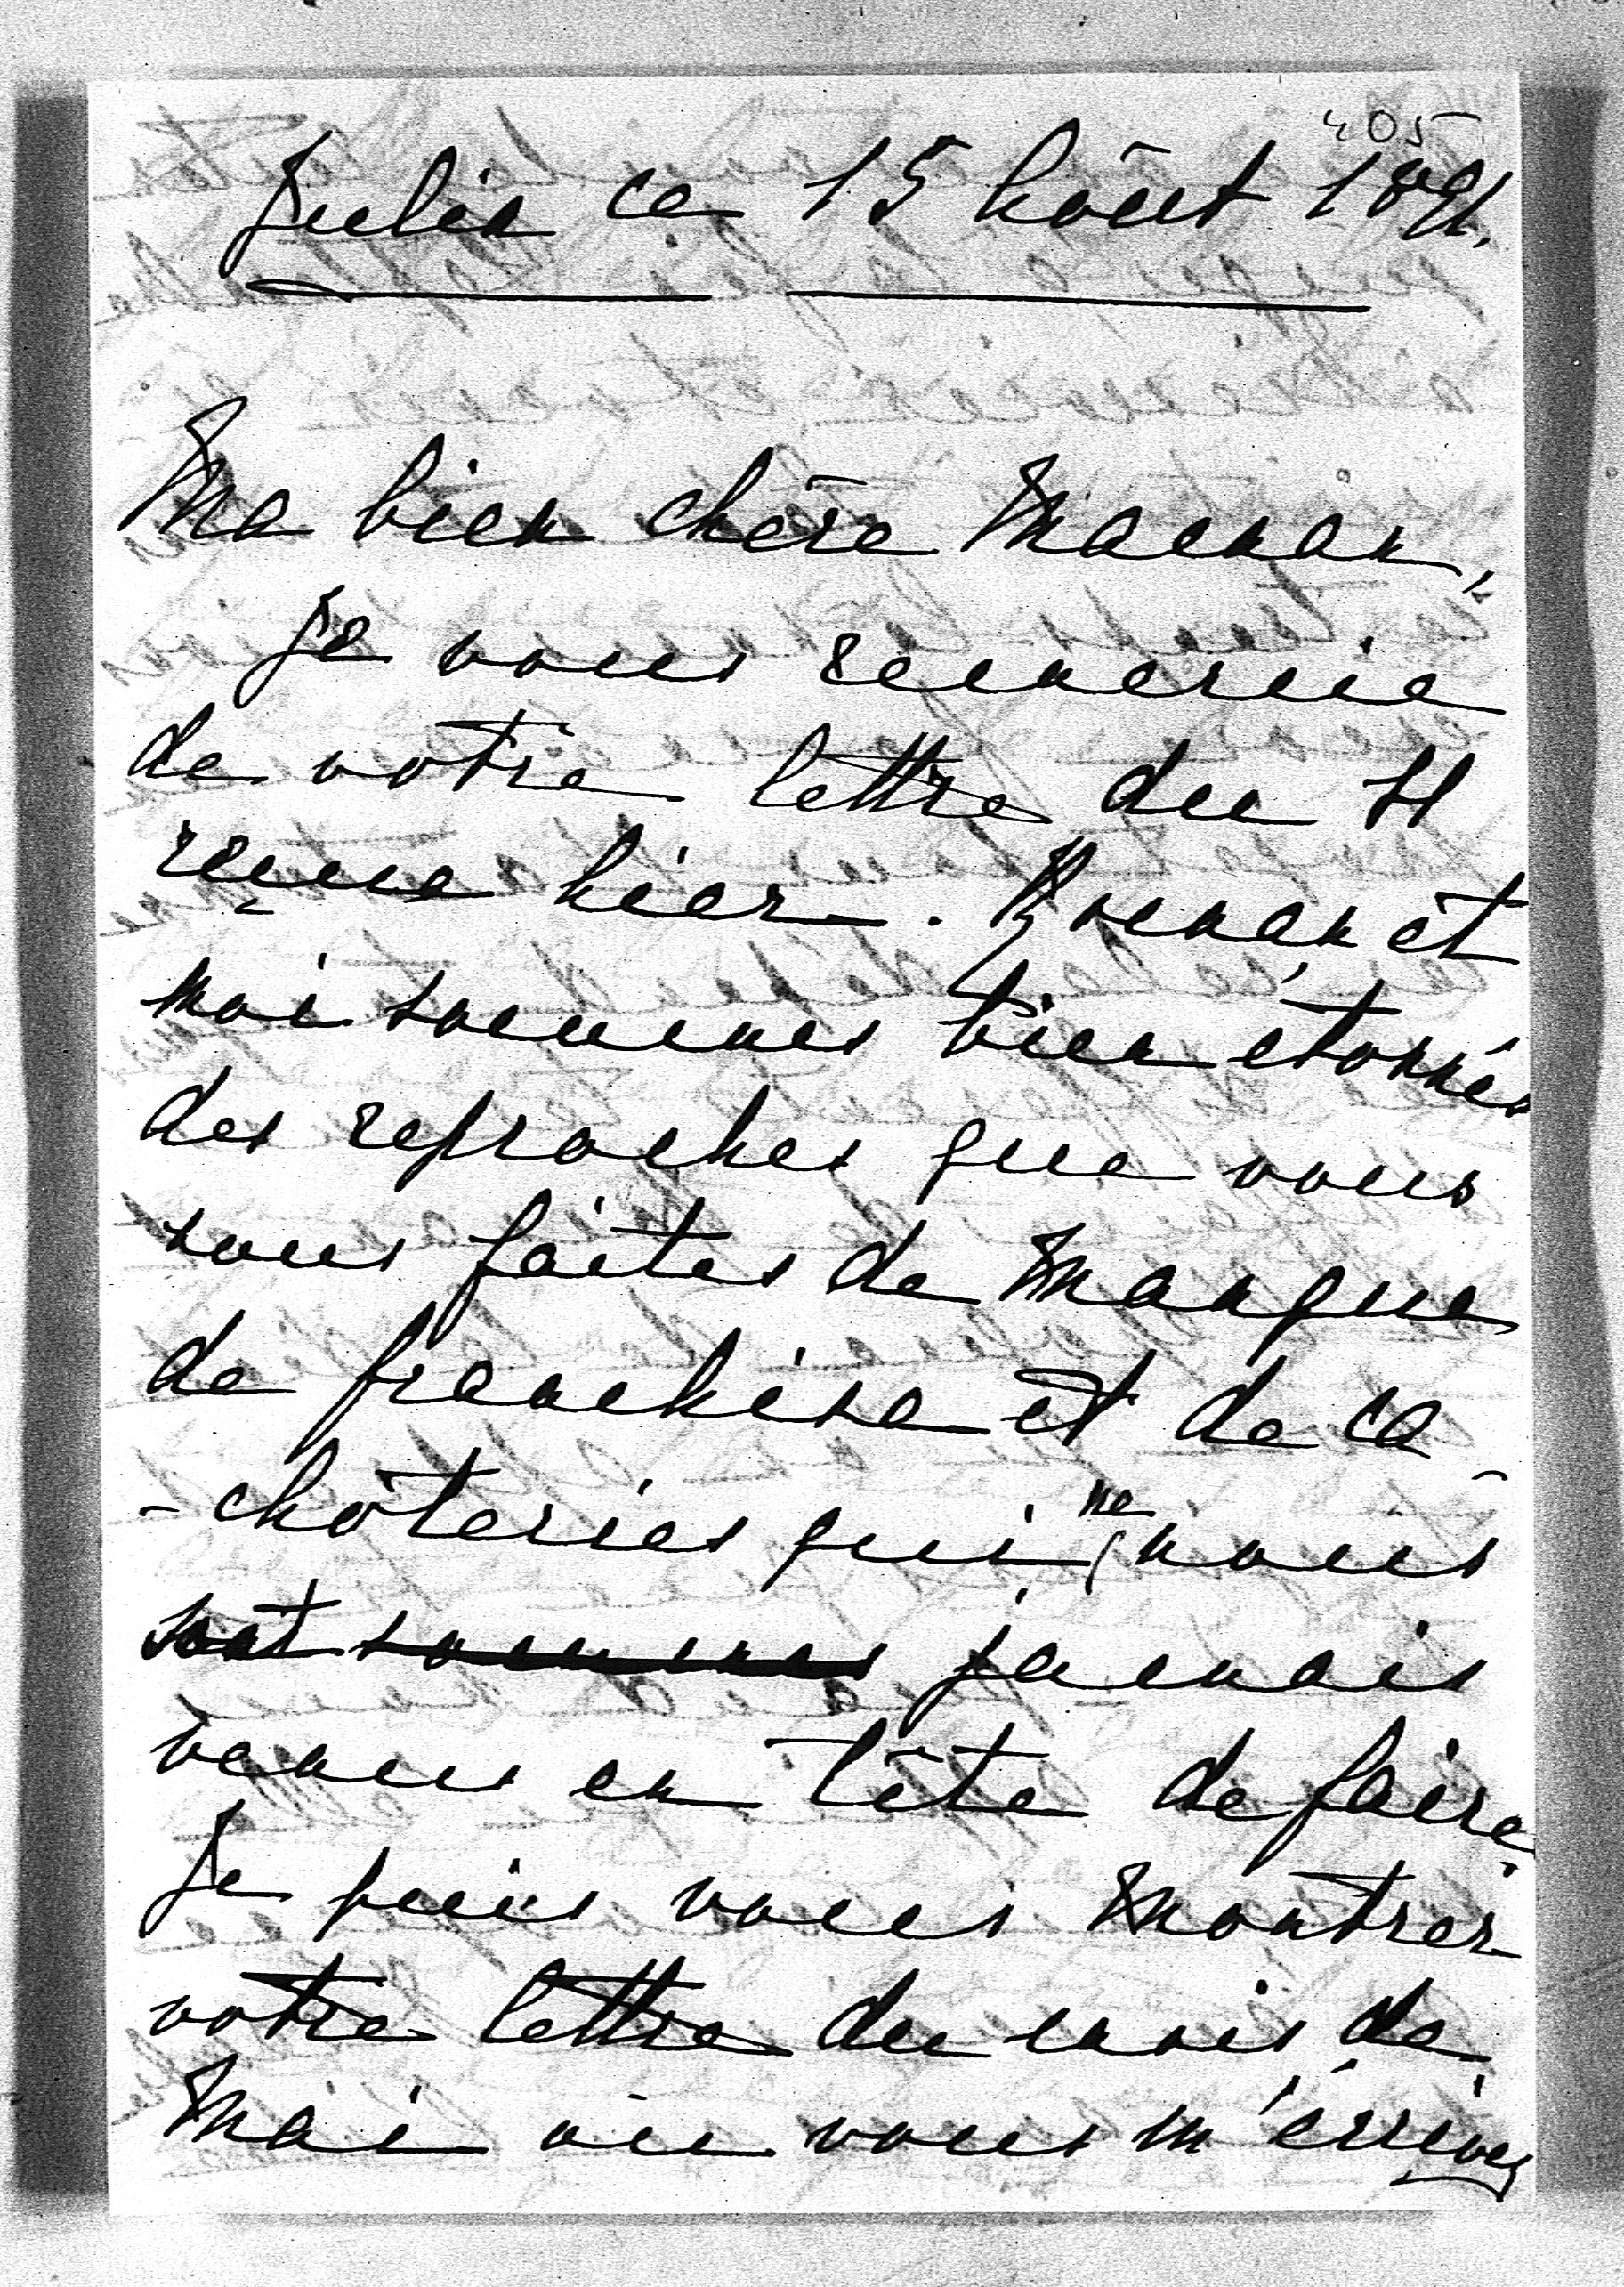 405
Julin ce 15 Août 1891.
Ma bien chère Maman,
Je vous remercie
de votre lettre du 11
reçue hier. Roman et
moi sommes bien étonnés
des reproches que vous
nous faites de manque
de franchise et de ca-
-choteries qui ne nous
sont sommes jamais
venues en tête de faire.
Je puis vous montrer
votre lettre du mois de
Mai où vous m'écrivez